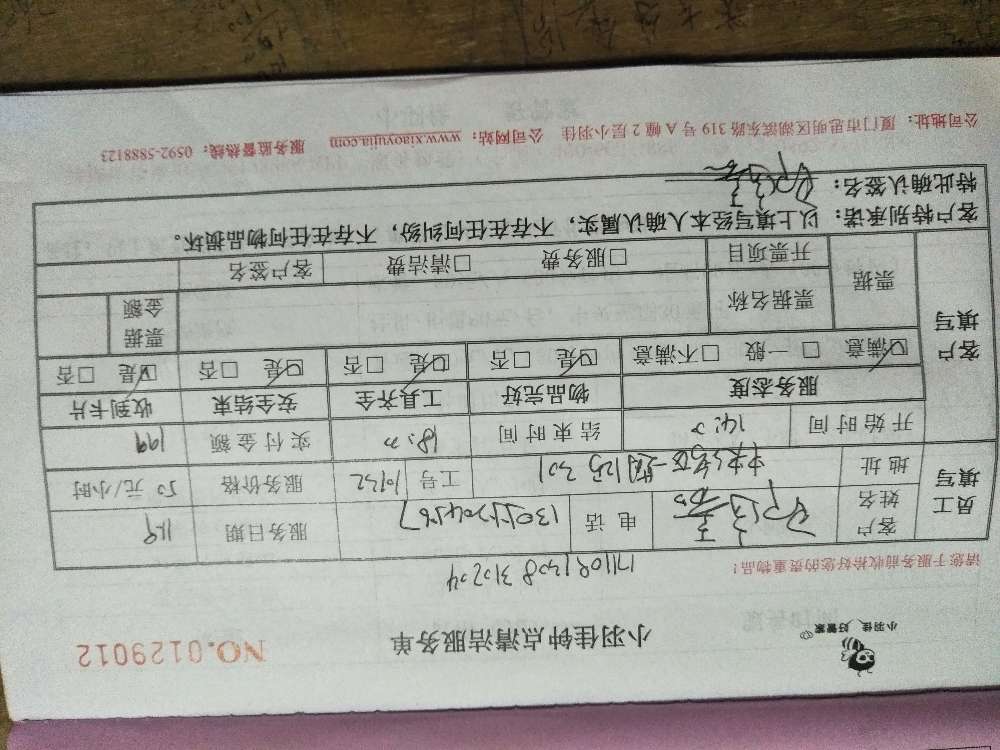 小羽佳 好管家
小羽佳钟点清洁服务单
NO.0129012
1711081308310204
请您于服务前收拾好您的贵重物品！
员工填写
客户姓名
电话 13055204567
服务日期 11.9
地址 一期125 301
工号 10932
服务价格 50 元/小时
开始时间 14:00
结束时间 18:00
实付金额 199
客户填写
服务态度 物品完好 工具齐全 安全结束 收到卡片
☑满意 □一般 □不满意 ☑是 □否 ☑是 □否 ☑是 □否 ☑是 □否
票据
票据名称
票据金额
开票项目 □服务费 □清洁费 客户签名
客户特别承诺：以上填写经本人确认属实，不存在任何纠纷，不存在任何物品损坏。
特此确认签名：
公司地址：厦门市思明区湖滨东路 319 号 A 幢 2 层小羽佳 公司网站：www.xiaoyujia.com 服务监督热线：0592-5888123